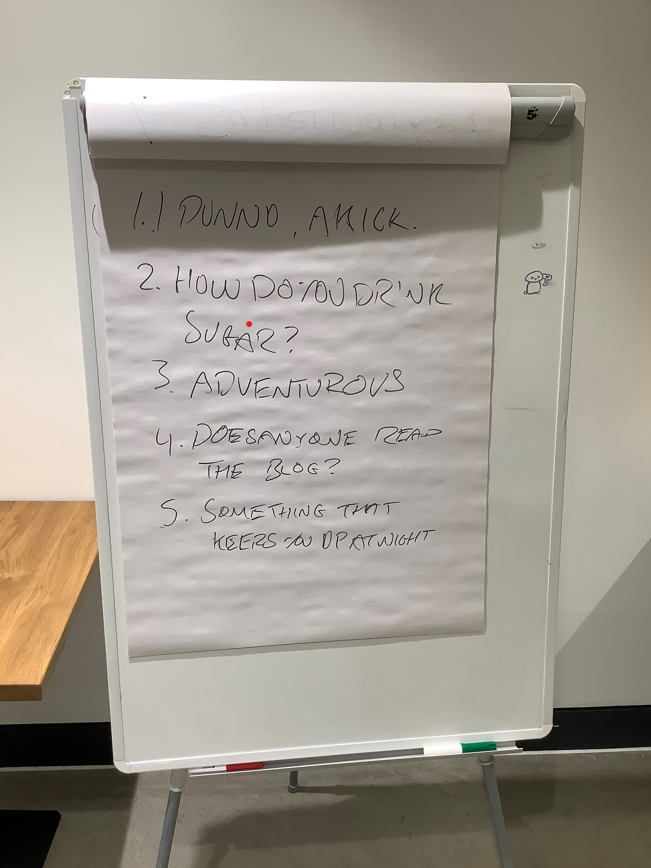 1. I DUNNO, A KICK.
2. HOW DO YOU DRINK
SUGAR?
3. ADVENTUROUS
4. DOES ANYONE READ
THE BLOG?
5. SOMETHING THAT
KEEPS YOU UP AT NIGHT